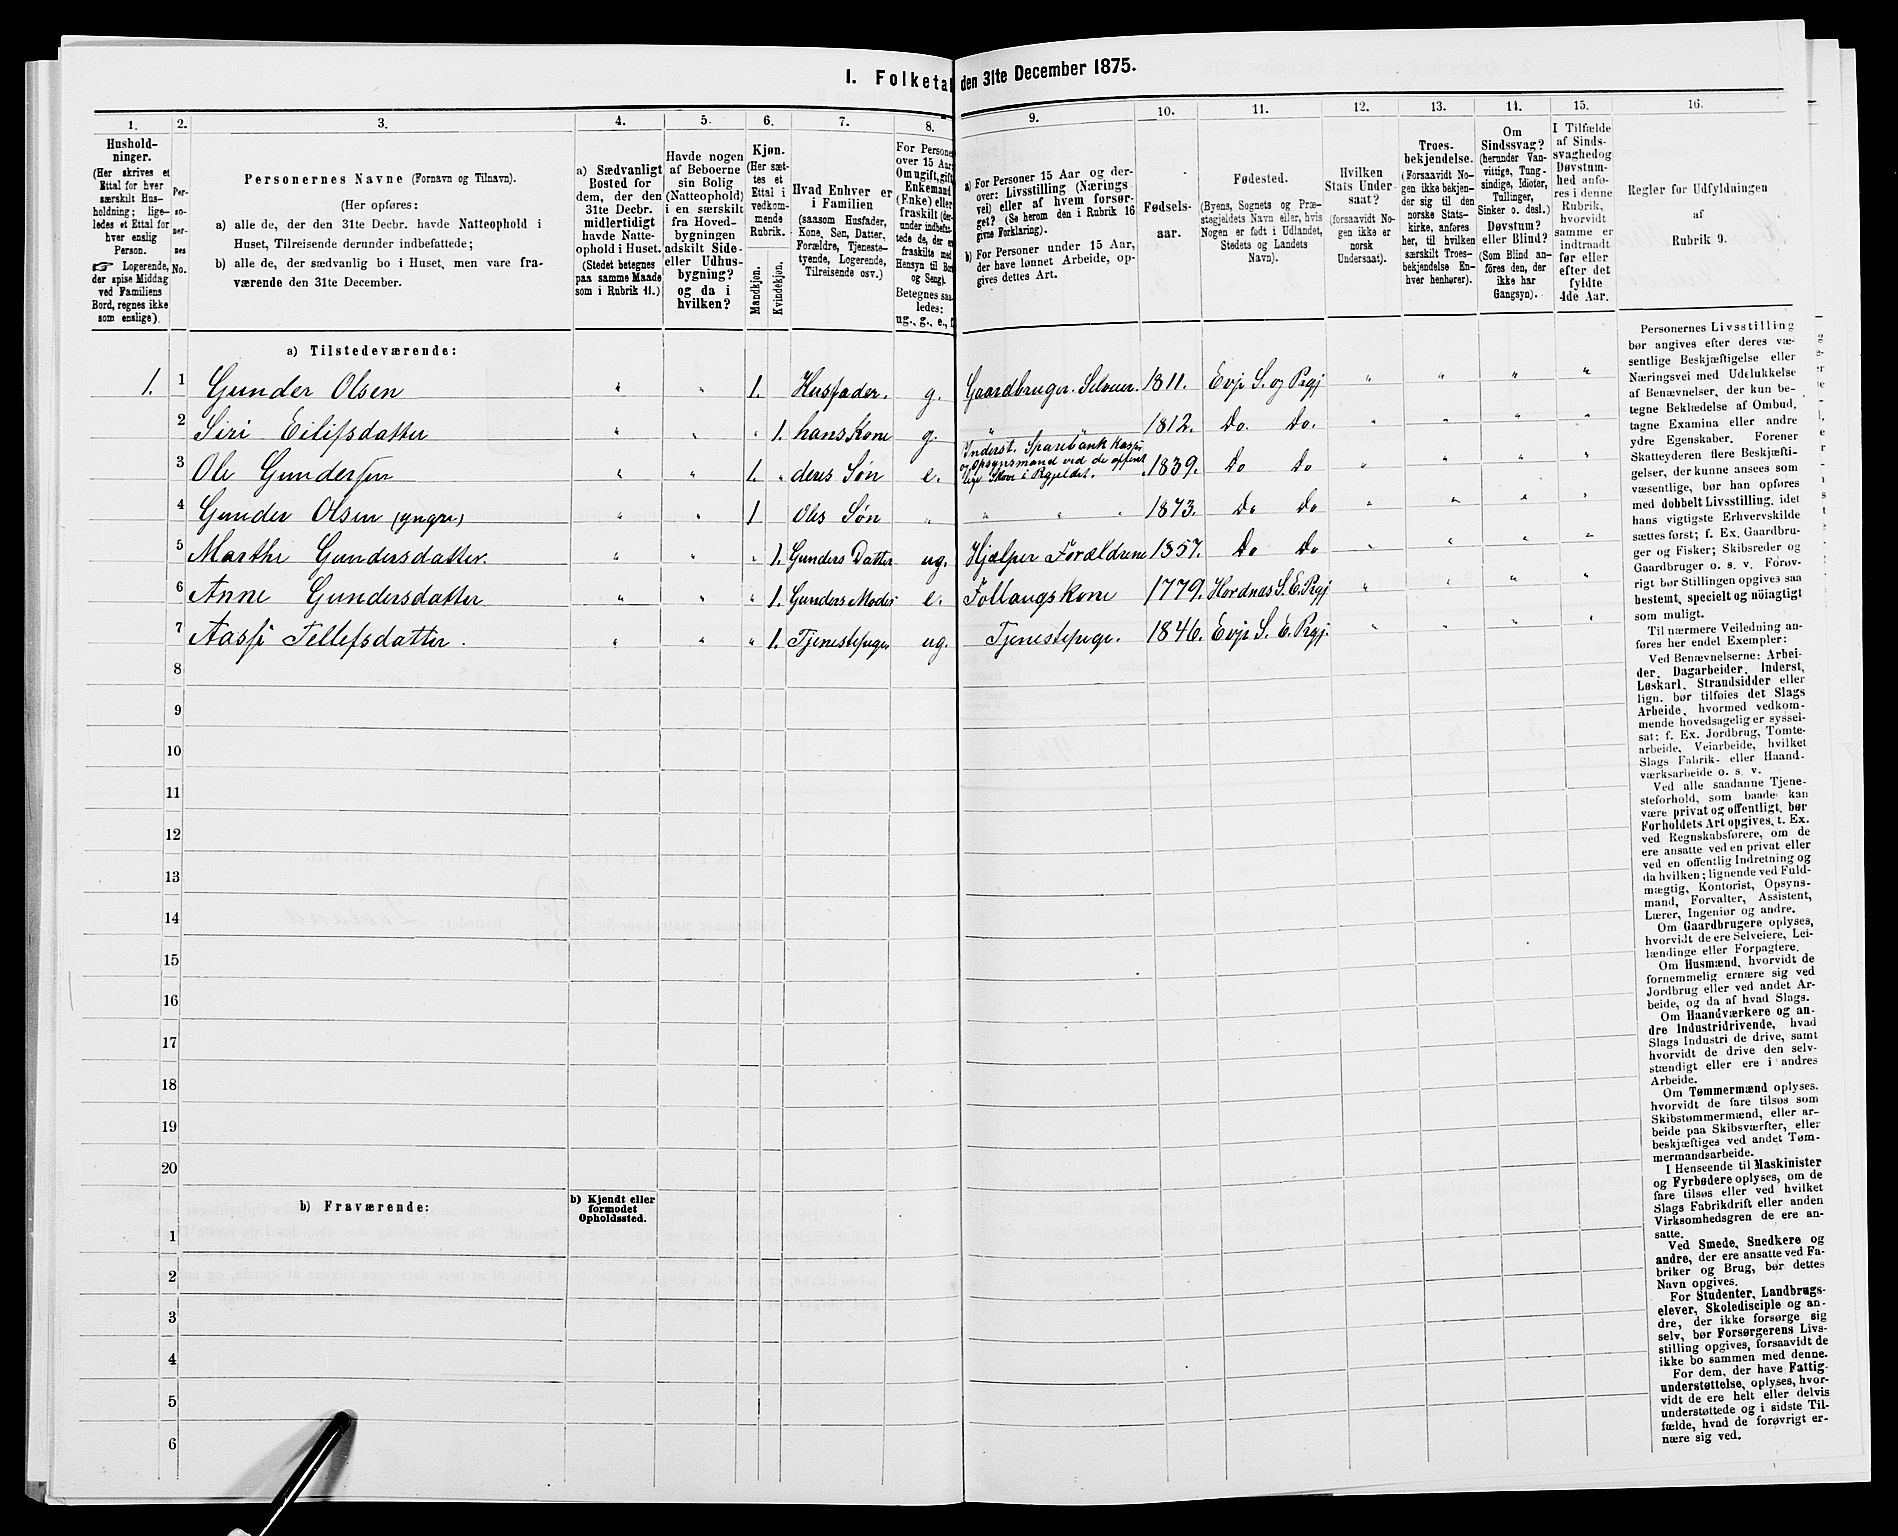 I. Folketal den 31te December 1875.
1.
2.
3.
4.
5.
6.
7.
8.
9.
10.
11.
12.
13.
14.
15.
16.
Hushold-
ninger.
(Her skrives et
Ettal for hver
særskilt Hus-
holdning; lige-
ledes et Ettal for
hver enslig
Person.
☞ Logerende,
der spise Middag
ved Familiens
Bord, regnes ikke
som enslige).
Per-
so-
ner-
nes
No.
Personernes Navne (Fornavn og Tilnavn).
(Her opføres:
a) alle de, der den 31te Decbr. havde Natteophold i
Huset, Tilreisende derunder indbefattede;
b) alle de, der sædvanlig bo i Huset, men vare fra-
værende den 31te December.
a) Sædvanligt
Bosted for
dem, der den
31te Decbr.
midlertidigt
havde Natte-
ophold i Huset.
(Stedet betegnes
paa samme Maade
som i Rubrik 11.)
Havde nogen
af Beboerne
sin Bolig
(Natteophold)
i en særskilt
fra Hoved-
bygningen
adskilt Side-
eller Udhus-
bygning?
og da i
hvilken?
Kjøn.
(Her sæt-
tes et
Ettal i
vedkom-
mende
Rubrik.
Mandkjøn.
Kvindekjøn.
Hvad Enhver er
i Familien
(saasom Husfader,
Kone, Søn, Datter,
Forældre, Tjeneste-
tyende, Logerende,
Tilreisende osv.)
For Personer
over 15 Aar:
Om ugift, gift,
Enkemand
(Enke) eller
fraskilt (der-
under indbefat-
tede de, der er
fraskilte med
Hensyn til Bord
og Seng).
Betegnes saa-
ledes:
ug., g., e.,
a) For Personer 15 Aar og der-
over: Livsstilling (Nærings-
vei) eller af hvem forsør-
get? (Se herom den i Rubrik 16
givne Forklaring).
b) For Personer under 15 Aar,
der have lønnet Arbeide, op-
gives dettes Art.
Fødsels-
aar.
Fødested.
(Byens, Sognets og Præ-
stegjeldets Navn eller, hvis
Nogen er født i Udlandet,
Stedets og Landets
Navn).
Hvilken
Stats Under-
saat?
(forsaavidt No-
gen ikke er
norsk
Undersaat).
Troes-
bekjendelse.
(Forsaavidt No-
gen ikke bekjen-
der sig til den
norske Stats-
kirke, anføres
her, til hvilken
særskilt Troes-
bekjendelse En-
hver henhører).
Om
Sindssvag?
(herunder Van-
vittige, Tung-
sindige, Idioter,
Tullinger,
Sinker o. desl.)
Døvstum?
eller Blind?
(Som Blind an-
føres den, der
ikke har
Gangsyn).
I Tilfælde
af Sinds-
svaghed og
Døvstum-
hed anfø-
res i denne
Rubrik,
hvorvidt
samme er
indtraadt
før eller
efter det
fyldte
4de Aar.
Regler for Udfyldningen
af
Rubrik 9.
a) Tilstedeværende:
1. 1 Gunder Olsen " " 1. Husfader. g. Gaardbruger. Selveier. 1811. Evje S. og Prgj " " " "
2 Siri Eilifsdatter " " " 1. hans Kone g. " 1812. Do. Do. " " " "
3 Ole Gundersen " " 1. " deres Søn e. Inderst. Sparebank Kasse
og Opsynsmand ved de offent
lige Skove i Prgjeldet. 1839. Do Do " " " "
4 Gunder Olsen (yngre) " " 1 Oles Søn " " " " 1873. Do Do " " " "
5 Marthe Gundersdatter. " " " 1. Gunders Datter ug. Hjælper Forældrene 1857. Do Do " " " "
6 Anne Gundersdatter " " " 1. Gunders Moder e. Føllaugskone 1779. Hordnæs S. E. Prgj " " " "
7 Aasse Tellefsdatter. " " " 1. Tjenestepige ug. Tjenestepige. 1846. Evje S. E. Prgj. " " " "
8
9
10
11
12
13
14
15
16
17
18
19
20
b) Fraværende:
b) Kjendt eller
formodet
Opholdssted.
1
2
3
4
5
6
Personernes Livsstilling
bør angives efter deres væ-
sentlige Beskjæftigelse eller
Næringsvei med Udelukkelse
af Benævnelser, der kun be-
tegne Beklædelse af Ombud,
tagne Examina eller andre
ydre Egenskaber. Forener
Skatteyderen flere Beskjæfti-
gelser, der kunne ansees som
væsentlige, bør han opføres
med dobbelt Livsstilling, idet
hans vigtigste Erhvervskilde
sættes først; f. Ex. Gaardbru-
ger og Fisker; Skibsreder og
Gaardbruger o. s. v. Forøv-
rigt bør Stillingen opgives saa
bestemt, specielt og nøiagtigt
som muligt.
Til nærmere Veiledning an-
føres her endel Exempler:
Ved Benævnelserne: Arbei-
der, Dagarbeider, Inderst,
Løskarl, Strandsidder eller
lign. bør tilføies det Slags
Arbeide, hvormed vedkom-
mende hovedsagelig er syssel-
sat; f. Ex. Jordbrug, Tomte-
arbeide, Veiarbeide, hvilket
Slags Fabrik- eller Haand-
værksarbeide o. s. v.
Ved alle saadanne Tjene-
steforhold, som baade kan
være privat og offentligt, bør
Forholdets Art opgives, t. Ex.
ved Regnskabsførere, om de
ere ansatte ved en privat eller
ved en offentlig Indretning og
da hvilken; lignende ved Fuld-
mægtig, Kontorist, Opsyns-
mand, Forvalter, Assistent,
Lærer, Ingeniør og andre.
Om Gaardbrugere oplyses,
hvorvidt de ere Selveiere, Lei-
lændinge eller Forpagtere.
Om Husmænd, hvorvidt de
fornemmelig ernære sig ved
Jordbrug eller ved andet Ar-
beide, og da af hvad Slags.
Om Haandværkere og an-
dre Industridrivende, hvad
Slags Industri de drive, samt
hvorvidt de drive den selv-
stændigt eller ere i andres
Arbeide.
Om Tømmermænd oplyses,
hvorvidt de fare tilsøs som
Skibstømmermænd, eller ar-
beide paa Skibsværfter, eller
beskjæftiges ved andet Tøm-
mermandsarbeide.
I Henseende til Maskinister
og Fyrbødere oplyses, om de
fare tilsøs eller ved hvilket
Slags Fabrikdrift eller anden
Virksomhedsgren de ere an-
satte.
Ved Smede, Snedkere og
andre, der ere ansatte ved Fa-
briker og Brug, bør dettes
Navn opgives.
For Studenter, Landbrugs-
elever, Skoledisciple og an-
dre, der ikke forsørge sig
selv, bør Forsørgerens Livs-
stilling opgives, forsaavidt de
ikke bo sammen med denne.
For dem, der have Fattig-
understøttelse, oplyses, hvor-
vidt de ere helt eller delvis
understøttede og i sidste Til-
fælde, hvad de forøvrigt er-
nære sig ved.